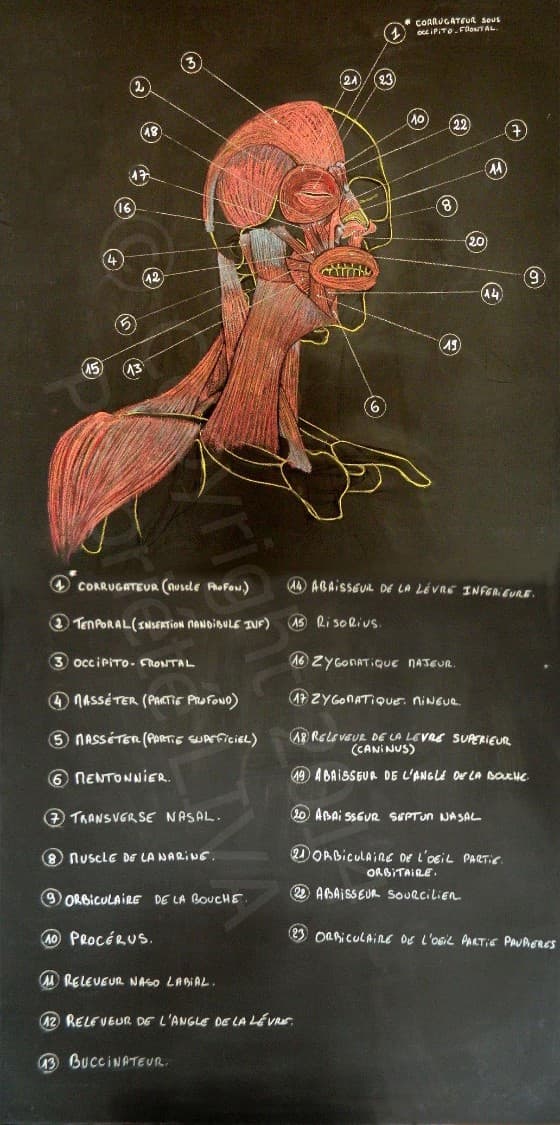 * CORRUGATEUR SOUS
OCCIPITO-FRONTAL.
1
3
21
23
2
10
22
18
7
17
11
16
8
4
20
12
9
14
5
19
15
13
6
1* CORRUGATEUR (MUSCLE PROFON.)
2 TEMPORAL (INSERTION MANDIBULE INF)
3 OCCIPITO-FRONTAL
4 MASSÉTER (PARTIE PROFOND)
5 MASSÉTER (PARTIE SUPERFICIEL)
6 MENTONNIER.
7 TRANSVERSE NASAL.
8 MUSCLE DE LA NARINE.
9 ORBICULAIRE DE LA BOUCHE.
10 PROCÉRUS.
11 RELEVEUR NASO LABIAL.
12 RELEVEUR DE L'ANGLE DE LA LÉVRE.
13 BUCCINATEUR.
14 ABAISSEUR DE LA LÉVRE INFERIEURE.
15 RISORIUS.
16 ZYGOMATIQUE MAJEUR.
17 ZYGOMATIQUE. MINEUR
18 RELEVEUR DE LA LEVRE SUPERIEUR
(CANINUS)
19 ABAISSEUR DE L'ANGLE DE LA BOUCHE.
20 ABAISSEUR SEPTUM NASAL
21 ORBICULAIRE DE L'OEIL PARTIE.
ORBITAIRE.
22 ABAISSEUR SOURCILIER
23 ORBICULAIRE DE L'OEIL PARTIE PAUPIERES